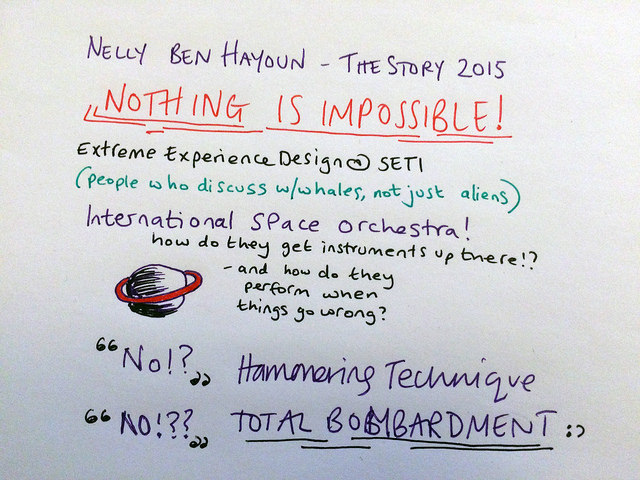 NELLY BEN HAYOUN - THE STORY 2015
"NOTHING IS IMPOSSIBLE!
Extreme Experience Design @ SETI
(people who discuss w/whales, not just aliens)
International Space Orchestra!
how do they get instruments up there!?
- and how do they
perform when
things go wrong?
"No!?" Hammering Technique
"NO!??" TOTAL BOMBARDMENT :)